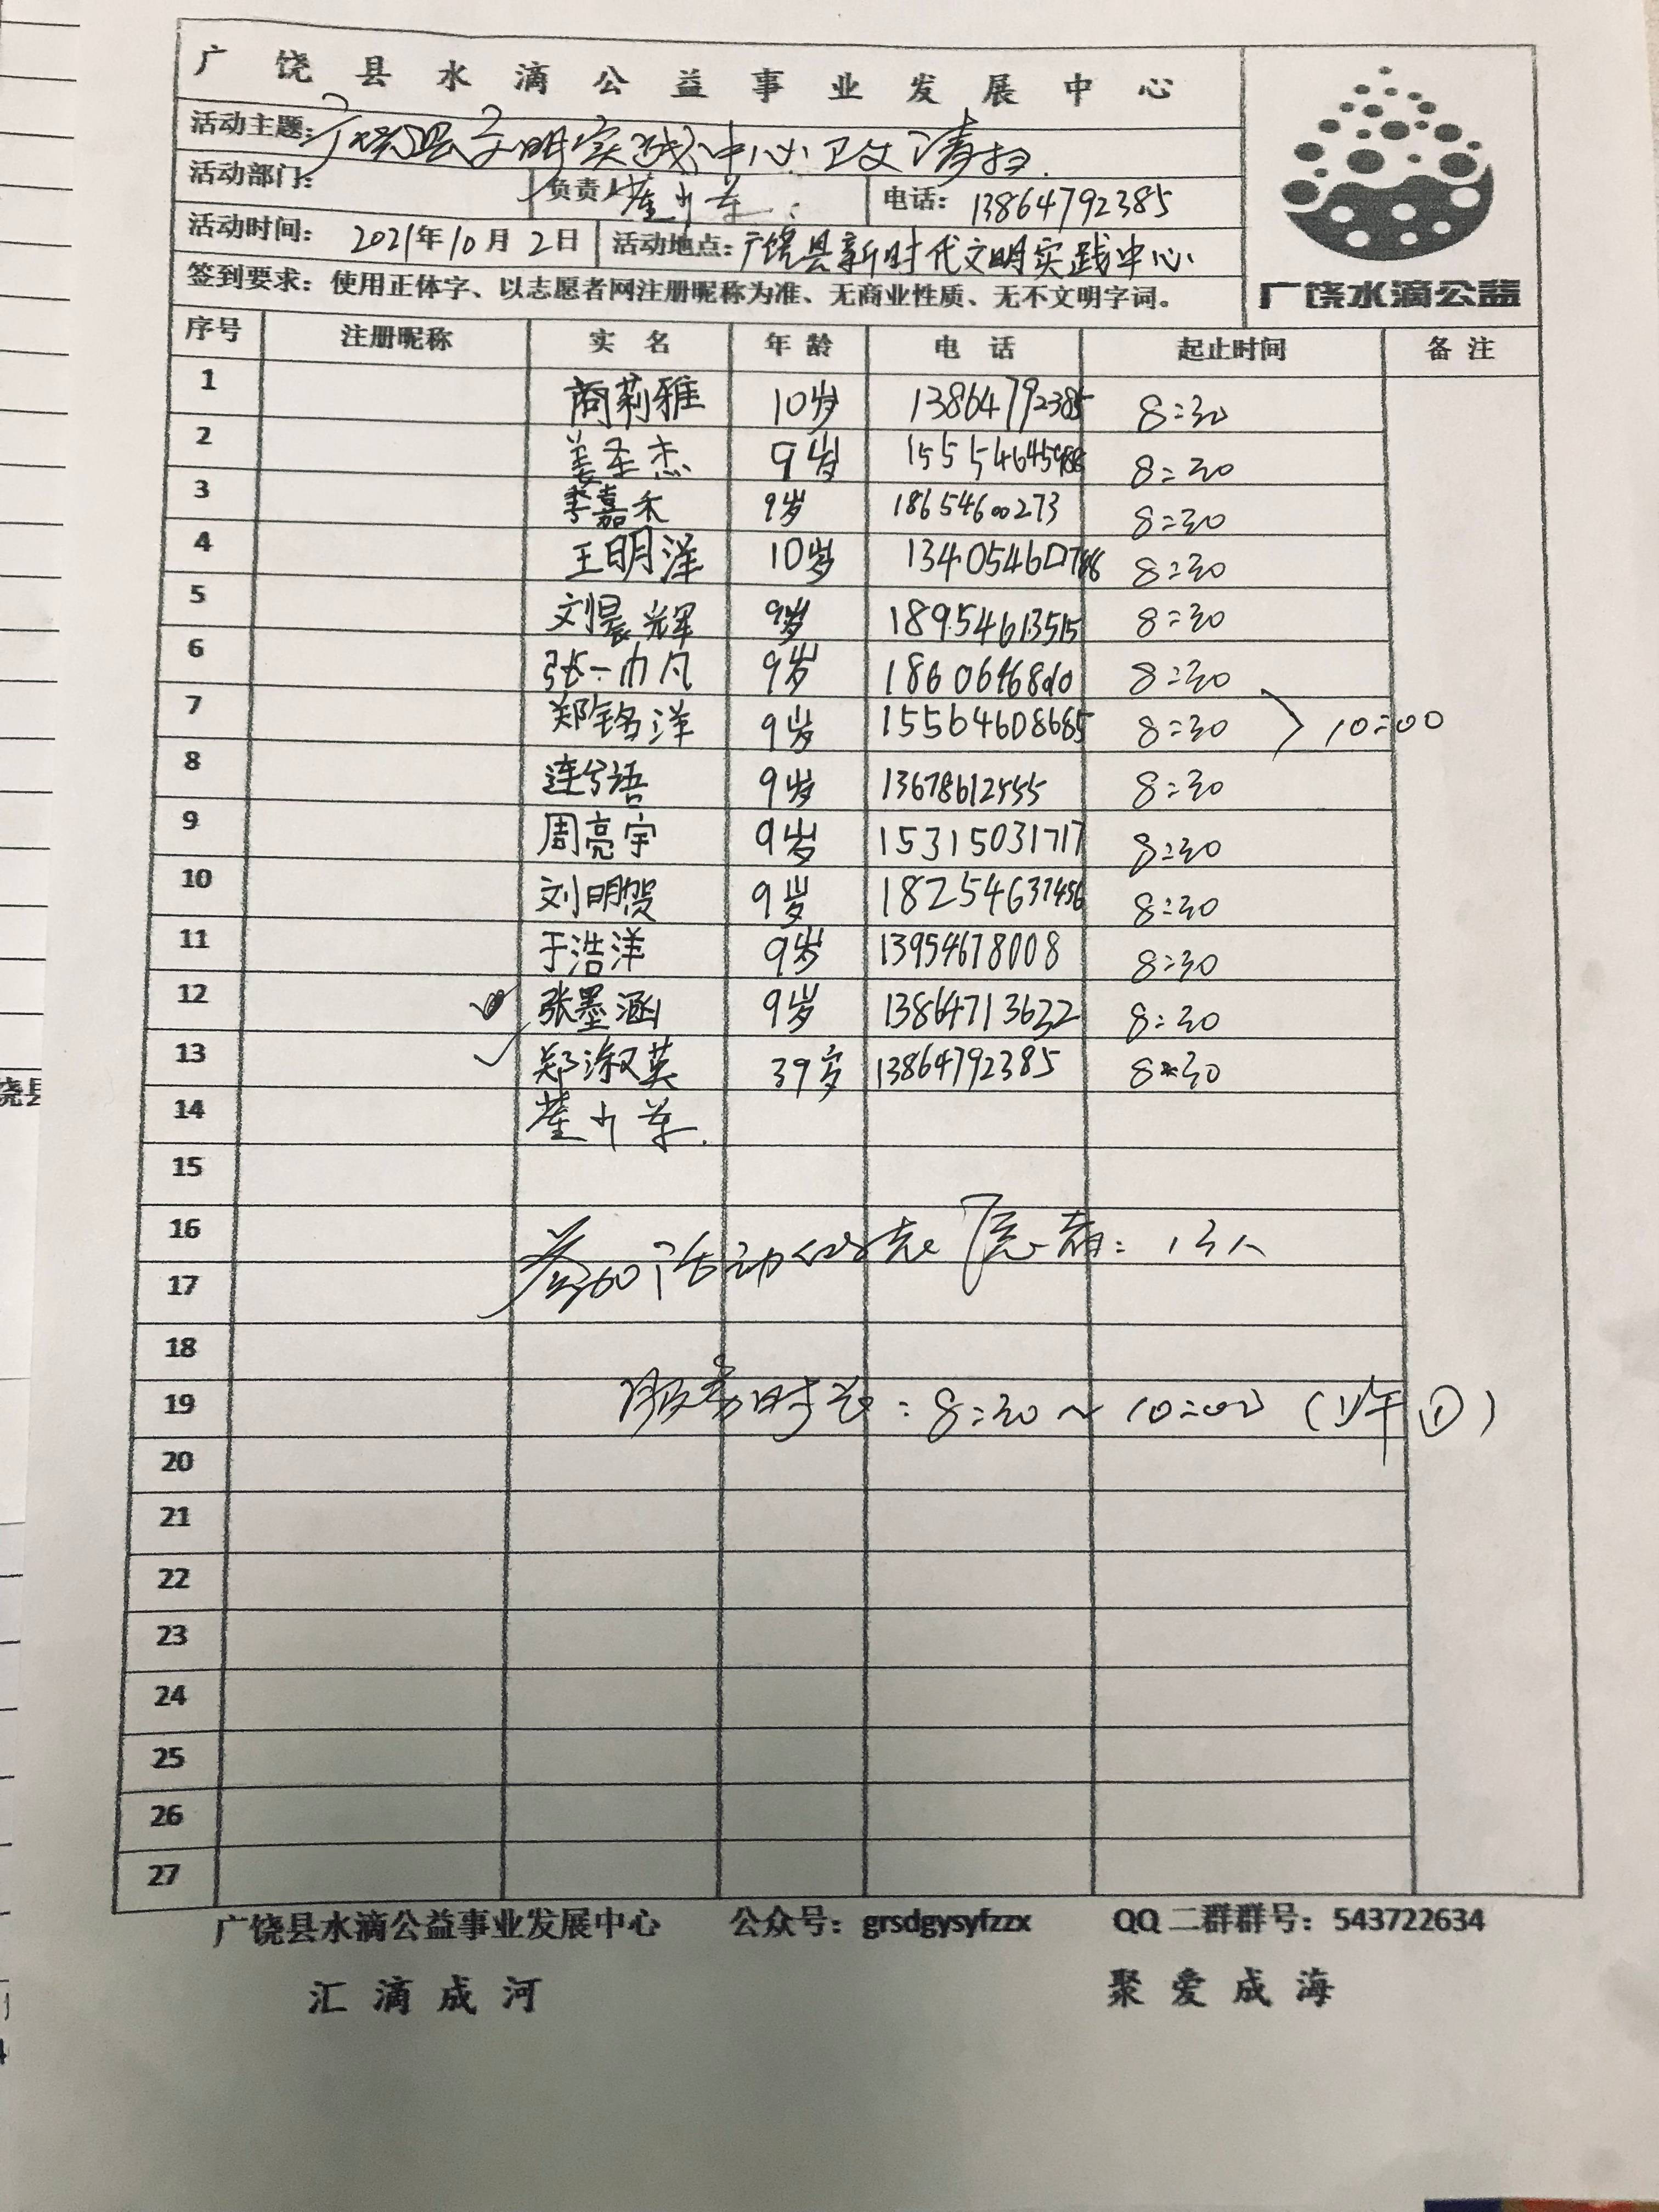 广饶县水滴公益事业发展中心
活动主题：广饶县文明实践中心卫生清扫.
活动部门： 负责人 电话：13864792385
活动时间：2021年10月2日 活动地点：广饶县新时代文明实践中心
签到要求：使用正体字、以志愿者网注册昵称为准、无商业性质、无不文明字词。
广饶水滴公益
序号 注册昵称 实名 年龄 电话 起止时间 备注
1 商莉雅 10岁 13864792385 8:30
2 姜圣杰 9岁 8:30
3 李嘉禾 9岁 18654600273 8:30
4 王明洋 10岁 8:30
5 刘晨辉 9岁 18954613515 8:30
6 张一帆 9岁 8:30
7 郑铭洋 9岁 15564608685 8:30 10:00
8 连兮语 9岁 13678612555 8:30
9 周亮宇 9岁 15315031717 8:30
10 刘明贺 9岁 18254637456 8:30
11 于浩洋 9岁 13954678008 8:30
12 张墨涵 9岁 13864713632 8:30
13 郑淑英 39岁 13864792385 8:30
14
15
16 参加活动 志愿者：13人
17
18
19 服务时长：8:30～10:00（上午）
20
21
22
23
24
25
26
27
广饶县水滴公益事业发展中心 公众号：grsdgysyfzzx QQ二群群号：543722634
汇滴成河 聚爱成海